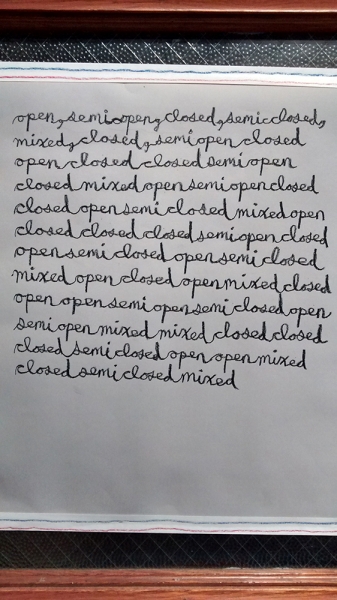 open, semiopen, closed, semiclosed,
mixed, closed, semiopen closed
open closed closed semi open
closed mixed open semiopen closed
closed open semi closed mixed open
closed closed closed semiopen closed
open semi closed open semi closed
mixed open closed open mixed closed
open open semi open semi closed open
semiopen mixed mixed closed closed
closed semi closed open open mixed
closed semi closed mixed